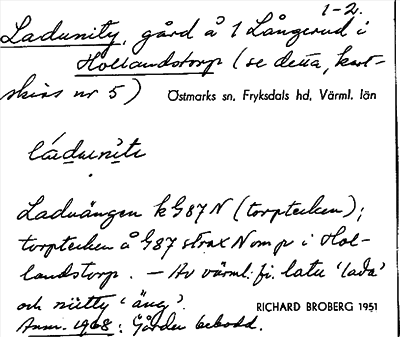 1-2.
Ladunity, gård å 1 Långerud i
Hollandstorp (se detta, kart-
skiss nr 5) Östmarks sn, Fryksdals hd, Värml. län
Laduängen k G87 N (torptecken);
torptecken å G87 strax N om p i Hol-
landstorp. — Av värml.fi. latu 'lada'
och niitty 'äng'. RICHARD BROBERG 1951
Anm. 1968: Gården bebodd.